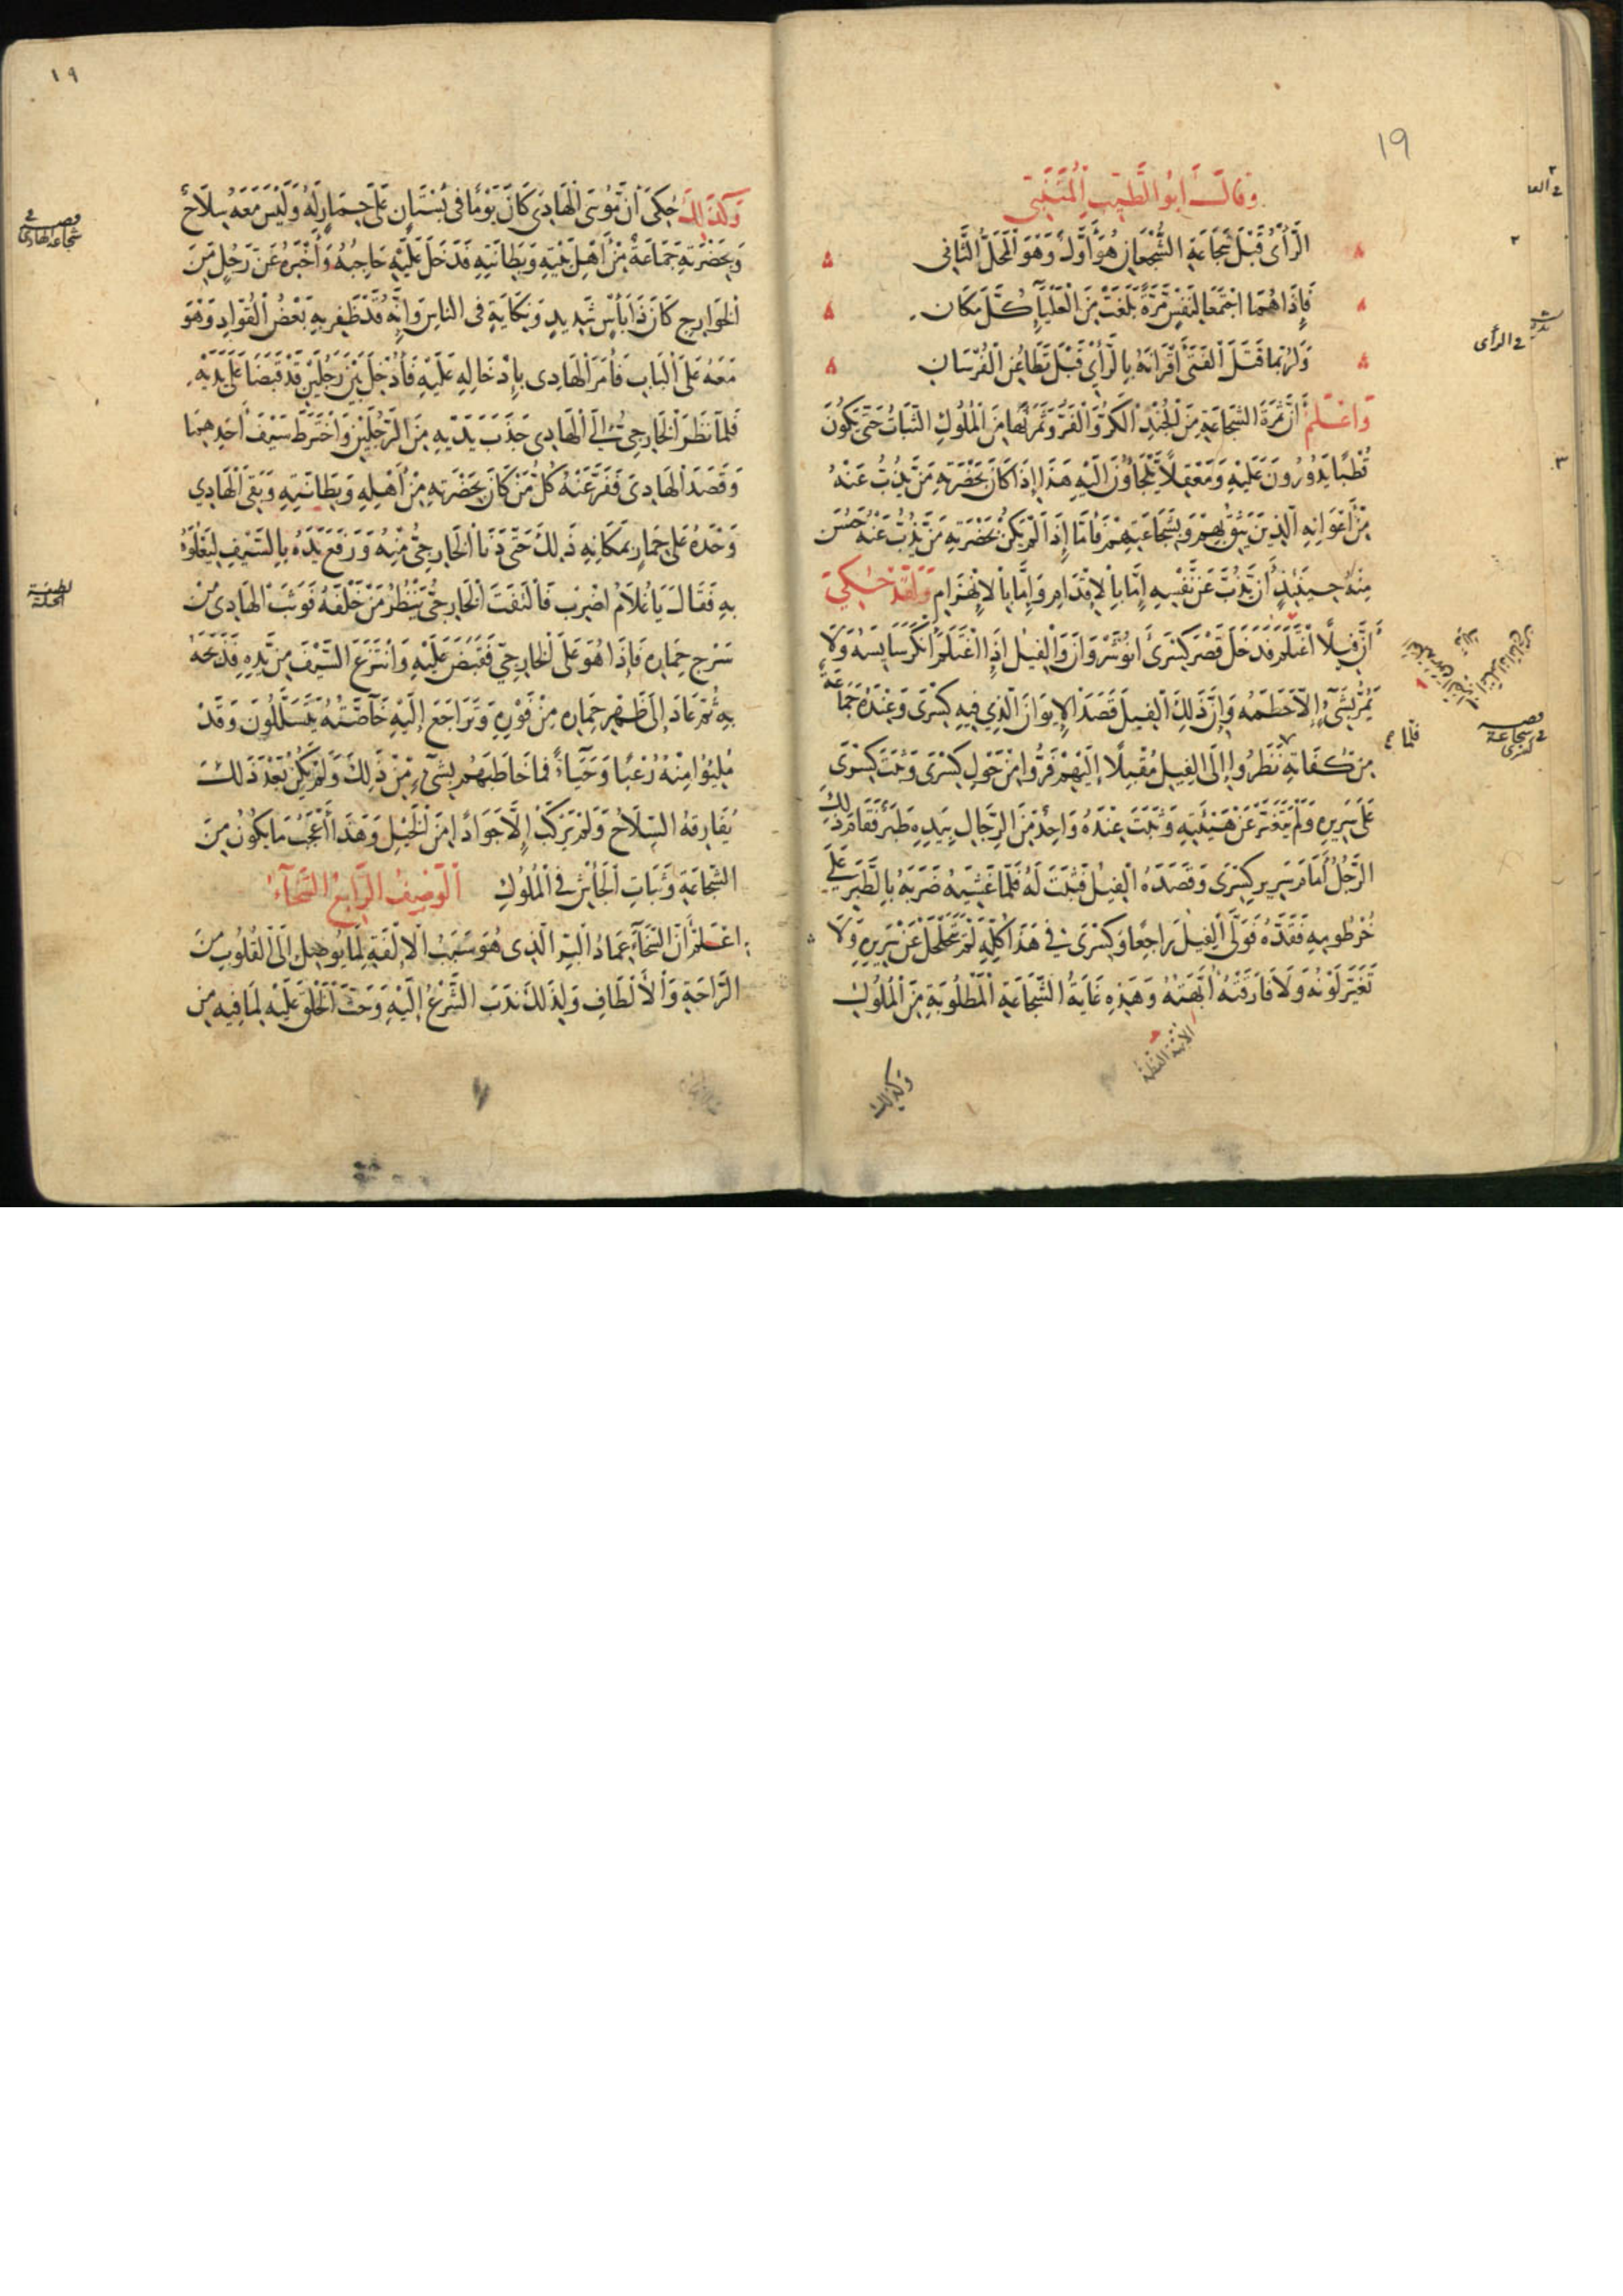 19
وَقَالَ اَبُو الطَّيِّبِ الْمُتَنَبِّي
الرَّأْىُ قَبْلَ شَجَاعَةِ الشُّجْعَانِ هُوَ أَوَّلٌ وَهْوَ الْمَحَلُّ الثَّانِى
فَإِذَا هُمَا اجْتَمَعَا لِنَفْسٍ مَرَّةً بَلَغَتْ مِنَ الْعَلْيَآءِ كُلَّ مَكَانِ
وَلَرُبَّمَا قَتَلَ الْفَتَى أَقْرَانَهُ بِالرَّأْىِ قَبْلَ تَطَاعُنِ الْفُرْسَانِ
وَاعْلَمْ أَنَّ ثَمَرَةَ الشَّجَاعَةِ مِنَ الْجُنْدِ الْكَرُّ وَالْفَرُّ وَثَمَرَتُهَا مِنَ الْمُلُوكِ الثَّبَاتُ حَتَّى يَكُونَ
قُطْبًا يَدُورُونَ عَلَيْهِ وَمَعْقِلاً يَلْجَأُونَ اِلَيْهِ هَذَا اِذَا كَانَ بِحَضْرَتِهِ مَنْ يَذُبُّ عَنْهُ
مِنْ أَعْوَانِهِ الَّذِينَ يَثِقُ بِهِمْ وَبِشَجَاعَتِهِمْ فَأَمَّا إِذَا لَمْ يَكُنْ بِحَضْرَتِهِ مَنْ يَذُبُّ عَنْهُ حَسُنَ
مِنْهُ حِينَئِذٍ أَنْ يَذُبَّ عَنْ نَفْسِهِ إِمَّا بِالْاِقْدَامِ وَإِمَّا بِالْاِنْهِزَامِ وَلَقَدْ حُكِيَ
أَنَّ فِيلاً اغْتَلَمَ فَدَخَلَ قَصْرَ كِسْرَى أَنُوشَرْوَانَ وَالْفِيلُ إِذَا اغْتَلَمَ أَنْكَرَ سَايِسَهُ وَلَا
يَمُرُّ بِشَىْءٍ إِلَّا حَطَمَهُ وَإِنَّ ذَلِكَ الْفِيلَ قَصَدَ الْإِيوَانَ الَّذِي فِيهِ كِسْرَى وَعِنْدَهُ جَمَاعَةٌ
مِنْ كُفَاتِهِ نَظَرُوا إِلَى الْفِيلِ مُقْبِلًا إِلَيْهِمْ فَرُّوا مِنْ حَوْلِ كِسْرَى وَثَبَتَ كِسْرَى
عَلَى سَرِيرِهِ وَلَمْ يَتَغَيَّرْ عَنْ هَيْئَتِهِ وَثَبَتَ عِنْدَهُ وَاحِدٌ مِنَ الرِّجَالِ بِيَدِهِ طَبَرٌ فَقَامَ ذَلِكَ
الرَّجُلُ أَمَامَ سَرِيرِ كِسْرَى وَقَصَدَهُ الْفِيلُ فَثَبَتَ لَهُ فَلَمَّا غَشِيَهُ ضَرَبَهُ بِالطَّبَرِ عَلَى
خُرْطُومِهِ فَقَدَّهُ فَوَلَّى الْفِيلُ رَاجِعًا وَكِسْرَى فِى هَذَا كُلِّهِ لَمْ يَتَحَلْحَلْ عَنْ سَرِيرِهِ وَلَا
تَغَيَّرَ لَوْنُهُ وَلَا فَارَقَتْهُ أُبَّهَتُهُ وَهَذِهِ غَايَةُ الشَّجَاعَةِ الْمَطْلُوبَةِ مِنَ الْمُلُوكِ
وكذلك
في الرأى
فلما
قصة
في شجاعة
كسرى
١٩
وَكَذَلِكَ حُكِىَ أَنَّ مُوسَى الْهَادِىَ كَانَ يَوْمًا فِى بُسْتَانٍ عَلَى حِمَارٍ لَهُ وَلَيْسَ مَعَهُ سِلَاحٌ
وَبِحَضْرَتِهِ جَمَاعَةٌ مِنْ أَهْلِ بَيْتِهِ وَبِطَانَتِهِ فَدَخَلَ عَلَيْهِ حَاجِبُهُ وَأَخْبَرَهُ عَنْ رَجُلٍ مِنَ
الْخَوَارِجِ كَانَ ذَا بَأْسٍ شَدِيدٍ وَنِكَايَةٍ فِى النَّاسِ وَإِنَّهُ قَدْ ظَفِرَ بِهِ بَعْضُ الْقُوَّادِ وَهْوَ
مَعَهُ عَلَى الْبَابِ فَأَمَرَ الْهَادِى بِإِدْخَالِهِ عَلَيْهِ فَأُدْخِلَ بَيْنَ رَجُلَيْنِ قَدْ قَبَضَا عَلَى يَدَيْهِ
فَلَمَّا نَظَرَ الْخَارِجِىُّ إِلَى الْهَادِى جَذَبَ يَدَيْهِ مِنَ الرَّجُلَيْنِ وَاخْتَرَطَ سَيْفَ أَحَدِهِمَا
وَقَصَدَ الْهَادِىَ فَفَرَّ عَنْهُ كُلُّ مَنْ كَانَ بِحَضْرَتِهِ مِنْ أَهْلِهِ وَبِطَانَتِهِ وَبَقِىَ الْهَادِي
وَحْدَهُ عَلَى حِمَارٍ بِمَكَانِهِ ذَلِكَ حَتَّى دَنَا الْخَارِجِىُّ مِنْهُ وَرَفَعَ يَدَهُ بِالسَّيْفِ لِيَعْلُوَهُ
بِهِ فَقَالَ يَا غُلَامُ اضْرِبْ فَالْتَفَتَ الْخَارِجِىُّ يَنْظُرُ مَنْ خَلْفَهُ فَوَثَبَ الْهَادِى مِنْ
سَرْجِ حِمَارِهِ فَإِذَا هُوَ عَلَى الْخَارِجِىِّ فَقَبَضَ عَلَيْهِ وَانْتَزَعَ السَّيْفَ مِنْ يَدِهِ فَذَبَحَهُ
بِهِ ثُمَّ عَادَ إِلَى ظَهْرِ حِمَارِهِ مِنْ فَوْرِهِ وَتَرَاجَعَ إِلَيْهِ خَاصَّتُهُ يَتَسَلَّلُونَ وَقَدْ
مُلِئُوا مِنْهُ رُعْبًا وَحَيَاءً فَمَا خَاطَبَهُمْ بِشَىْءٍ مِنْ ذَلِكَ وَلَمْ يَكُنْ بَعْدَ ذَلِكَ
يُفَارِقُهُ السِّلَاحُ وَلَمْ يَرْكَبْ إِلَّا جَوَادًا مِنَ الْخَيْلِ وَهَذَا أَعْجَبُ مَا يَكُونُ مِنَ
الشَّجَاعَةِ وَثَبَاتِ الْجَأْشِ فِى الْمُلُوكِ اَلْوَصْفُ الرَّابِعُ السَّخَآءُ
اعْلَمْ أَنَّ السَّخَآءَ عِمَادُ الْبِرِّ الَّذِى هُوَ سَبَبُ الْاِلْفَةِ لِمَا يُوصِلُ اِلَى الْقُلُوبِ مِنَ
الرَّاحَةِ وَالْأَلْطَافِ وَلِذَلِكَ نَدَبَ الشَّرْعُ إِلَيْهِ وَحَثَّ الْخَلْقَ عَلَيْهِ لِمَا فِيهِ مِنَ
قصة في
شجاعة الهادى
لطيفة